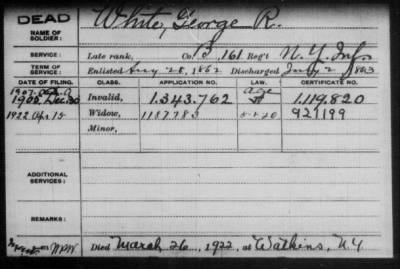 DEAD
White, George R.
NAME OF SOLDIER:
SERVICE: Late rank, Co. B, 161 Reg't N.Y. Inf
TERM OF SERVICE: Enlisted Aug 28, 1862 Discharged July 2 1863
DATE OF FILING. CLASS. APPLICATION NO. LAW. CERTIFICATE NO.
1907
age
1905 Dec. 30 Invalid, 1.343.762 1.119.820
1922 Apr. 15 Widow, 1187783 5-1-20 921199
Minor,
ADDITIONAL SERVICES:
REMARKS:
Died March 26, 1922, at Watkins, N.Y